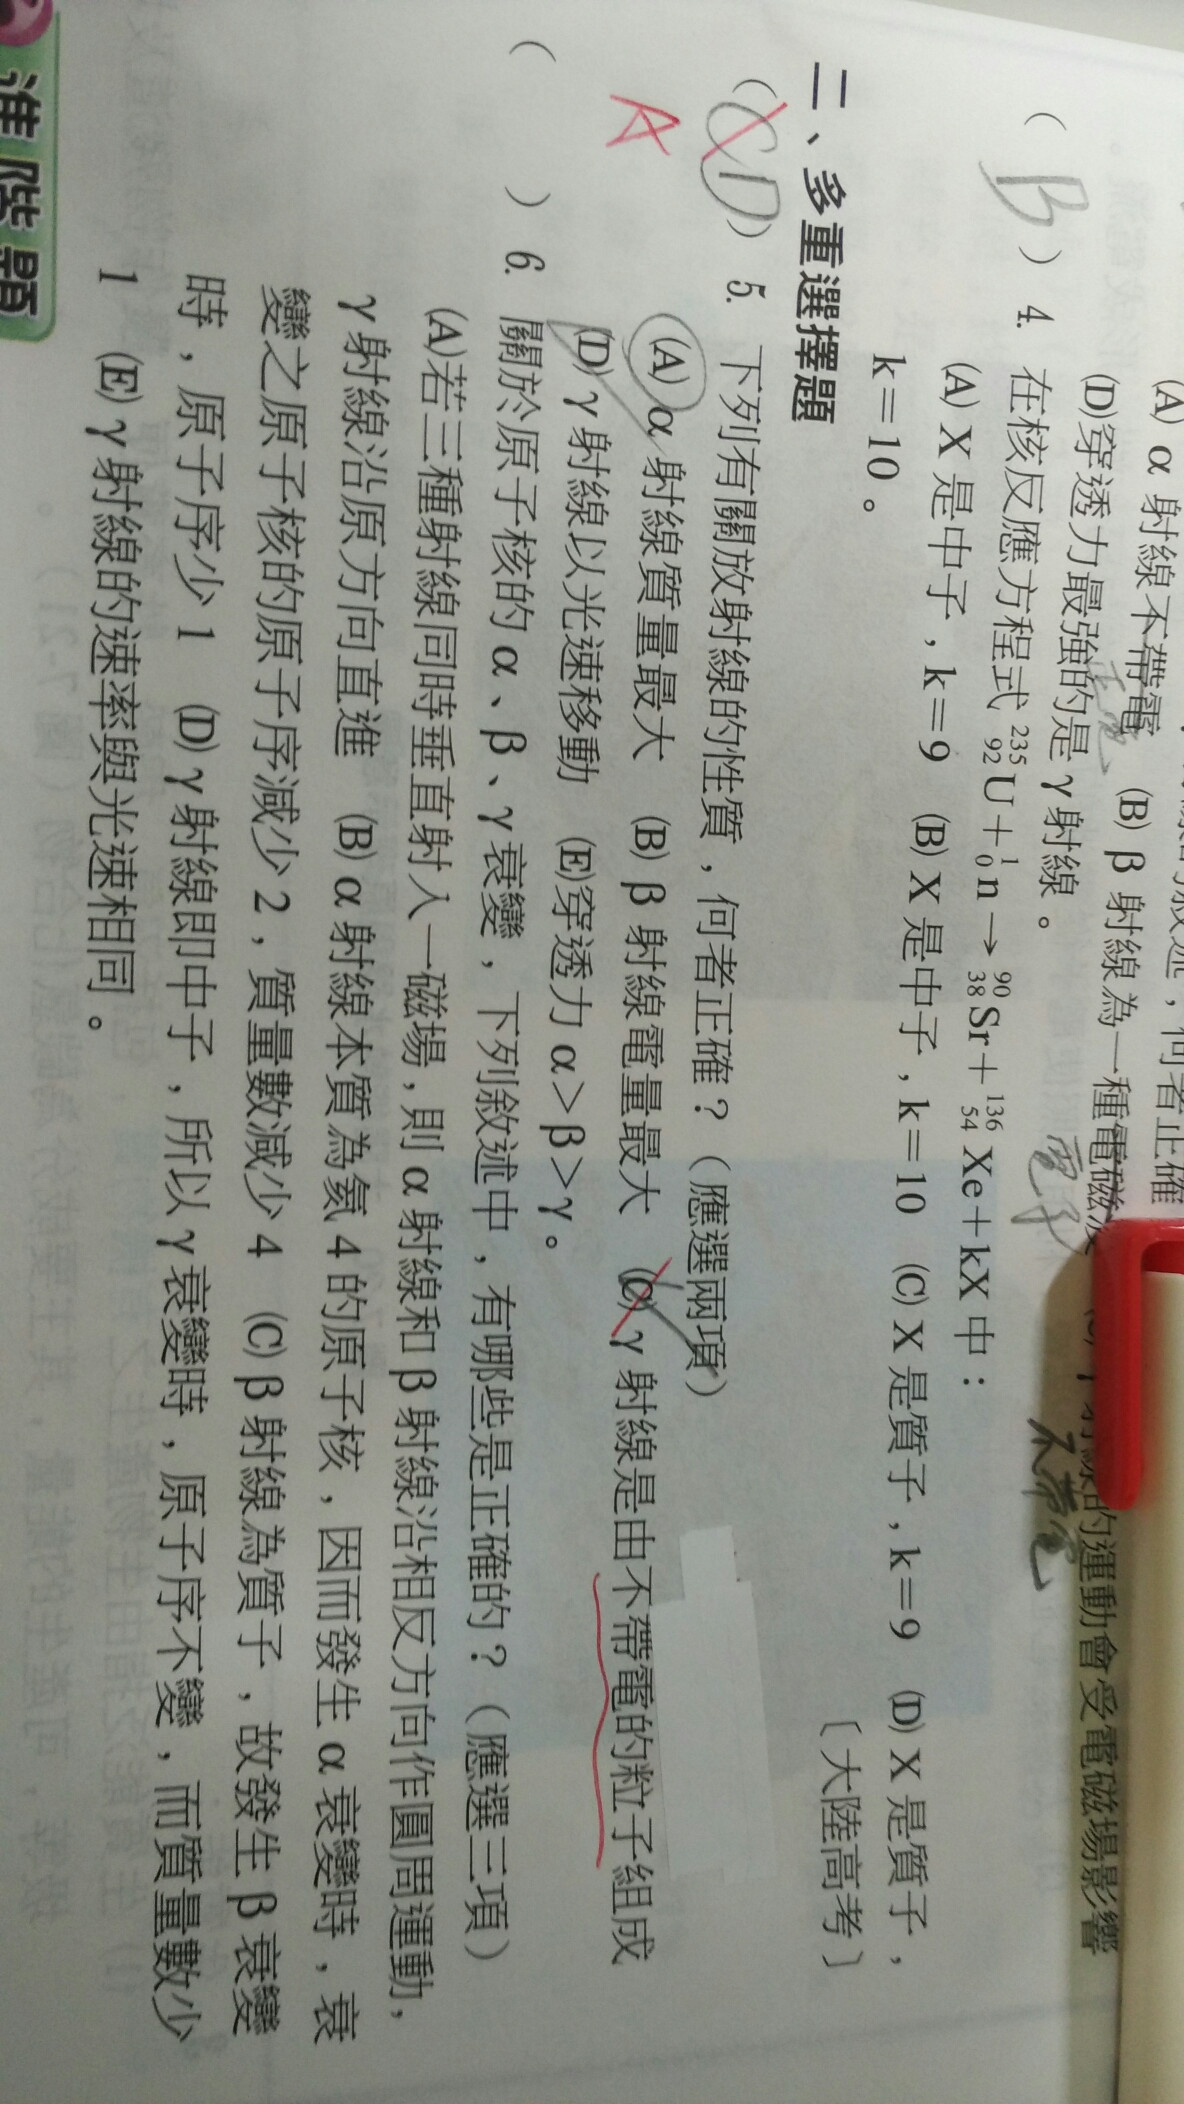 (A) α 射線不帶電 (B) β 射線為一種電磁波
正電
電子
不帶電
的運動會受電磁場影響
(D)穿透力最強的是 γ 射線。
( B ) 4. 在核反應方程式 ²³⁵₉₂U + ¹₀n → ⁹⁰₃₈Sr + ¹³⁶₅₄Xe + kX 中：
(A) X 是中子，k＝9 (B) X 是中子，k＝10 (C) X 是質子，k＝9 (D) X 是質子，
k＝10。
〔大陸高考〕
二、多重選擇題
( CD ) 5. 下列有關放射線的性質，何者正確？（應選兩項）
A
(A) α 射線質量最大 (B) β 射線電量最大 (C) γ 射線是由不帶電的粒子組成
(D) γ 射線以光速移動 (E)穿透力 α＞β＞γ。
( ) 6. 關於原子核的 α、β、γ 衰變，下列敘述中，有哪些是正確的？（應選三項）
(A)若三種射線同時垂直射入一磁場，則 α 射線和 β 射線沿相反方向作圓周運動，
γ 射線沿原方向直進 (B) α 射線本質為氦 4 的原子核，因而發生 α 衰變時，衰
變之原子核的原子序減少 2，質量數減少 4 (C) β 射線為質子，故發生 β 衰變
時，原子序少 1 (D) γ 射線即中子，所以 γ 衰變時，原子序不變，而質量數少
1 (E) γ 射線的速率與光速相同。
進階題